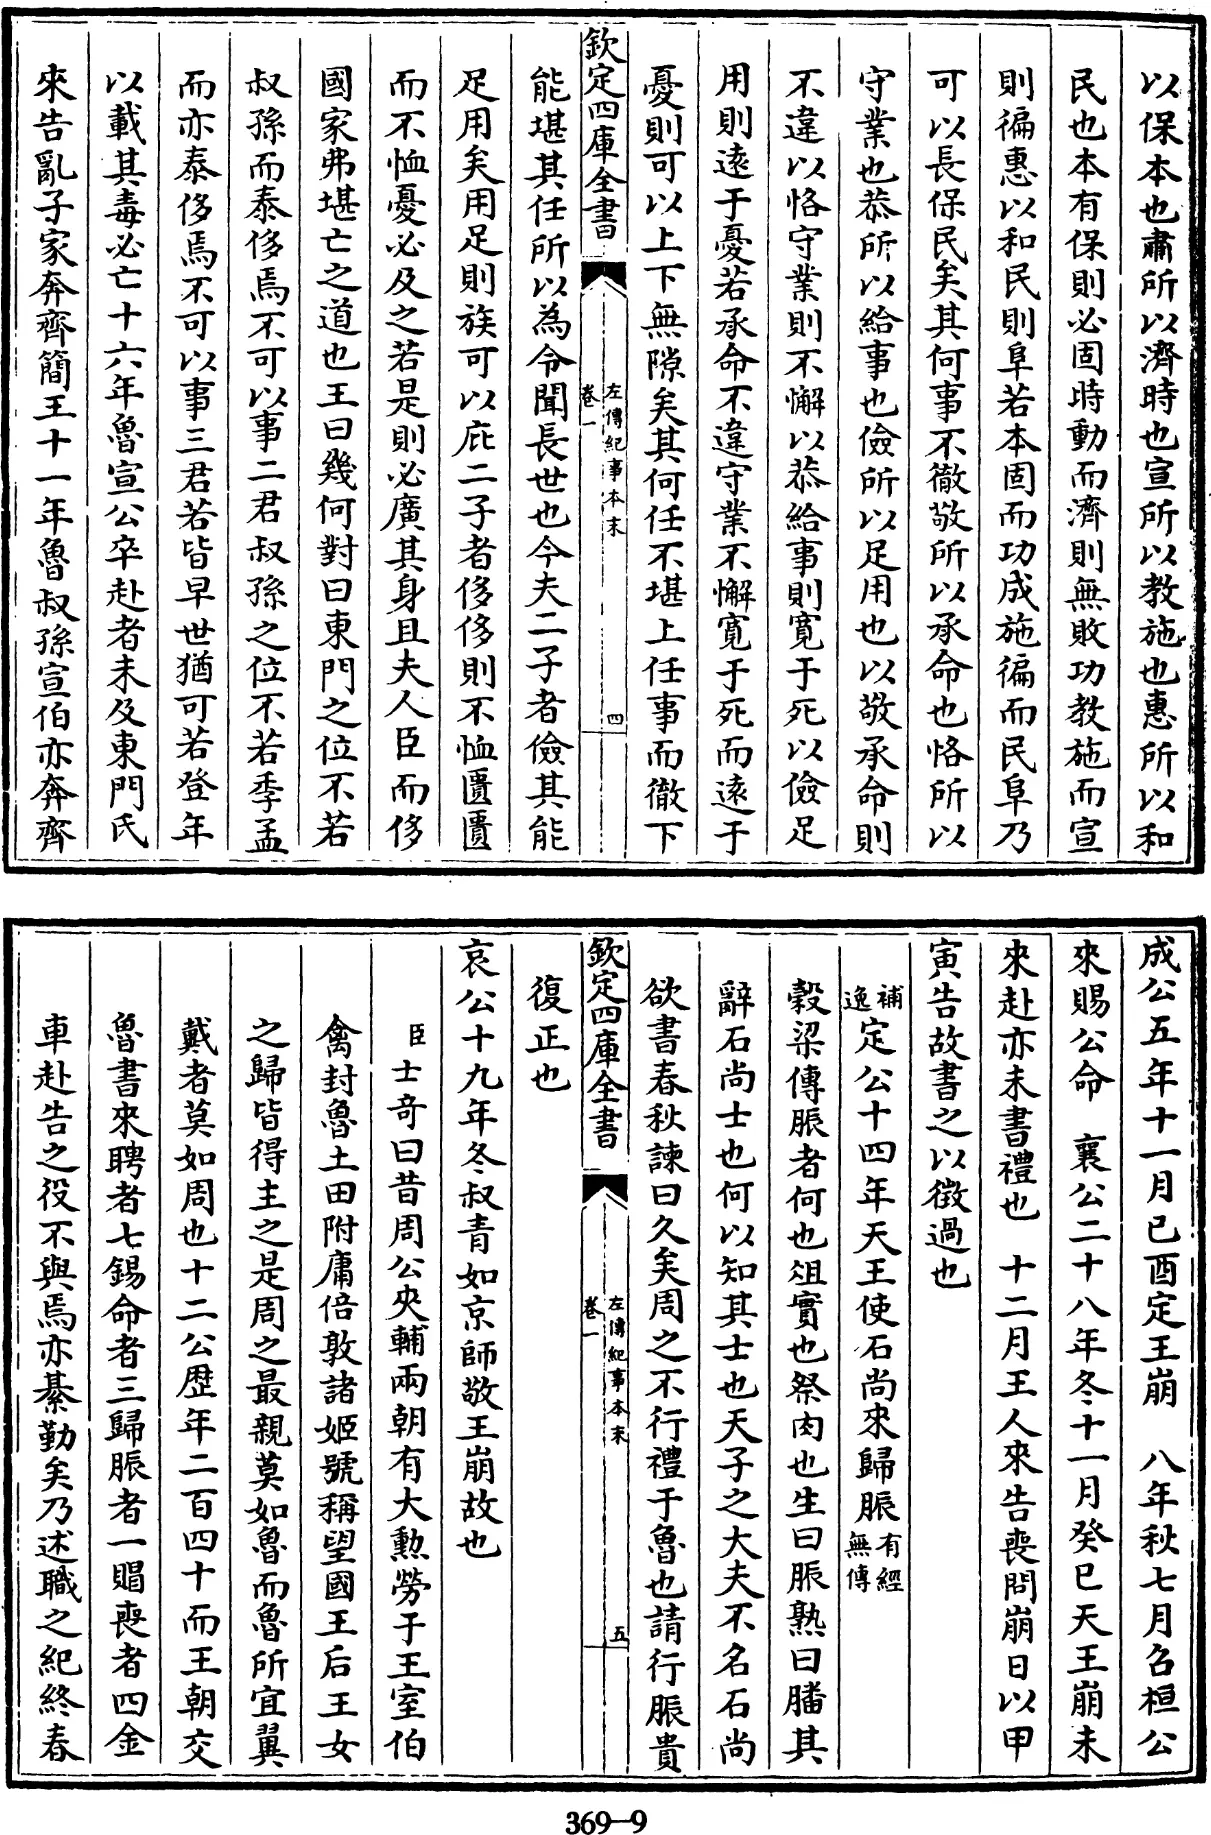 以保本也肅所以濟時也宣所以教施也惠所以和
民也本有保則必固時動而濟則無敗功教施而宣
則徧惠以和民則阜若本固而功成施徧而民阜乃
可以長保民矣其何事不徹敬所以承命也恪所以
守業也恭所以給事也儉所以足用也以敬承命則
不違以恪守業則不懈以恭給事則寬于死以儉足
用則遠于憂若承命不違守業不懈寬于死而遠于
憂則可以上下無隙矣其何任不堪上任事而徹下
欽定四庫全書
左傳紀事本末
卷一
四
能堪其任所以為令聞長世也今夫二子者儉其能
足用矣用足則族可以庇二子者侈侈則不恤匱匱
而不恤憂必及之若是則必廣其身且夫人臣而侈
國家弗堪亡之道也王曰幾何對曰東門之位不若
叔孫而泰侈焉不可以事二君叔孫之位不若季孟
而亦泰侈焉不可以事三君若皆早世猶可若登年
以載其毒必亡十六年魯宣公卒赴者未及東門氏
來告亂子家奔齊簡王十一年魯叔孫宣伯亦奔齊
成公五年十一月己酉定王崩　八年秋七月召桓公
來賜公命　襄公二十八年冬十一月癸巳天王崩未
來赴亦未書禮也　十二月王人來告喪問崩日以甲
寅告故書之以徵過也
補逸定公十四年天王使石尚來歸脤有經無傳
穀梁傳脤者何也俎實也祭肉也生曰脤熟曰膰其
辭石尚士也何以知其士也天子之大夫不名石尚
欲書春秋諫曰久矣周之不行禮于魯也請行脤貴
欽定四庫全書
左傳紀事本末
卷一
五
復正也
哀公十九年冬叔青如京師敬王崩故也
臣士奇曰昔周公夾輔兩朝有大勲勞于王室伯
禽封魯土田附庸倍敦諸姬號稱望國王后王女
之歸皆得主之是周之最親莫如魯而魯所宜翼
戴者莫如周也十二公歴年二百四十而王朝交
魯書來聘者七錫命者三歸脤者一賵喪者四金
車赴告之役不與焉亦綦勤矣乃述職之紀終春
369-9